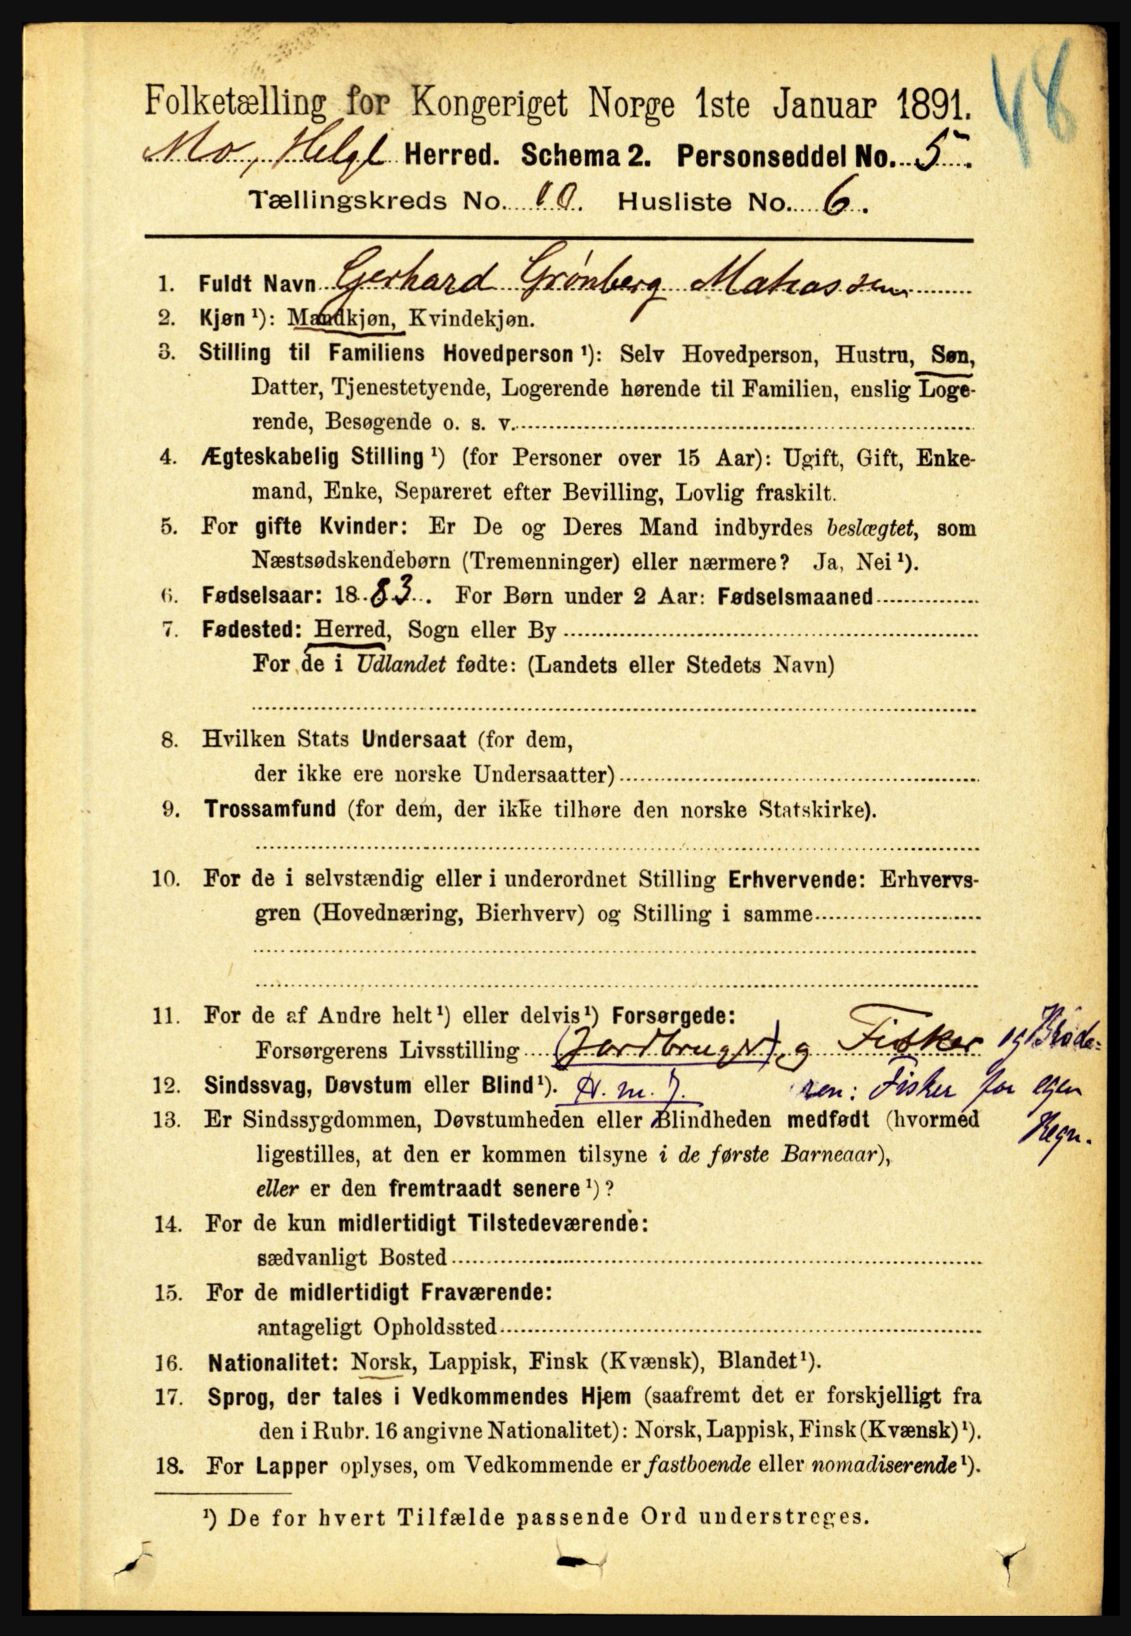 48
Folketælling for Kongeriget Norge 1ste Januar 1891.
Mo, Helgl Herred. Schema 2. Personseddel No. 5.
Tællingskreds No. 10. Husliste No. 6.
1. Fuldt Navn Gerhard Grønberg Matiassen
2. Kjøn ¹): Mandkjøn, Kvindekjøn.
3. Stilling til Familiens Hovedperson ¹): Selv Hovedperson, Hustru, Søn,
Datter, Tjenestetyende, Logerende hørende til Familien, enslig Loge-
rende, Besøgende o. s. v.
4. Ægteskabelig Stilling ¹) (for Personer over 15 Aar): Ugift, Gift, Enke-
mand, Enke, Separeret efter Bevilling, Lovlig fraskilt.
5. For gifte Kvinder: Er De og Deres Mand indbyrdes beslægtet, som
Næstsødskendebørn (Tremenninger) eller nærmere? Ja, Nei ¹).
6. Fødselsaar: 1883. For Børn under 2 Aar: Fødselsmaaned
7. Fødested: Herred, Sogn eller By
For de i Udlandet fødte: (Landets eller Stedets Navn)
8. Hvilken Stats Undersaat (for dem,
der ikke ere norske Undersaatter)
9. Trossamfund (for dem, der ikke tilhøre den norske Statskirke).
10. For de i selvstændig eller i underordnet Stilling Erhvervende: Erhvervs-
gren (Hovednæring, Bierhverv) og Stilling i samme
11. For de af Andre helt ¹) eller delvis ¹) Forsørgede:
Forsørgerens Livsstilling (Jordbruger) og Fisker og Brode-
12. Sindssvag, Døvstum eller Blind ¹). ren: Fisker for egen
13. Er Sindssygdommen, Døvstumheden eller Blindheden medfødt (hvormed Regn.
ligestilles, at den er kommen tilsyne i de første Barneaar),
eller er den fremtraadt senere ¹)?
14. For de kun midlertidigt Tilstedeværende:
sædvanligt Bosted
15. For de midlertidigt Fraværende:
antageligt Opholdssted
16. Nationalitet: Norsk, Lappisk, Finsk (Kvænsk), Blandet ¹).
17. Sprog, der tales i Vedkommendes Hjem (saafremt det er forskjelligt fra
den i Rubr. 16 angivne Nationalitet): Norsk, Lappisk, Finsk (Kvænsk) ¹).
18. For Lapper oplyses, om Vedkommende er fastboende eller nomadiserende ¹).
¹) De for hvert Tilfælde passende Ord understreges.